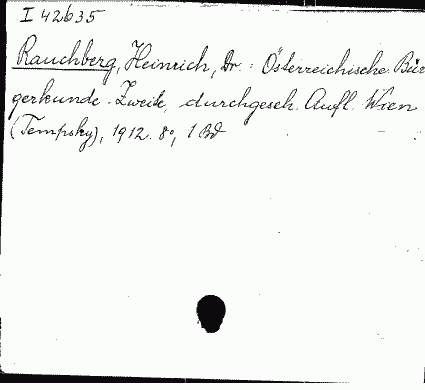 I 42635
Rauchberg, Heinrich, Dr.: Österreichische Bür
gerkunde. Zweite, durchgeseh. Aufl. Wien
(Tempsky), 1912. 8o, 1 Bd